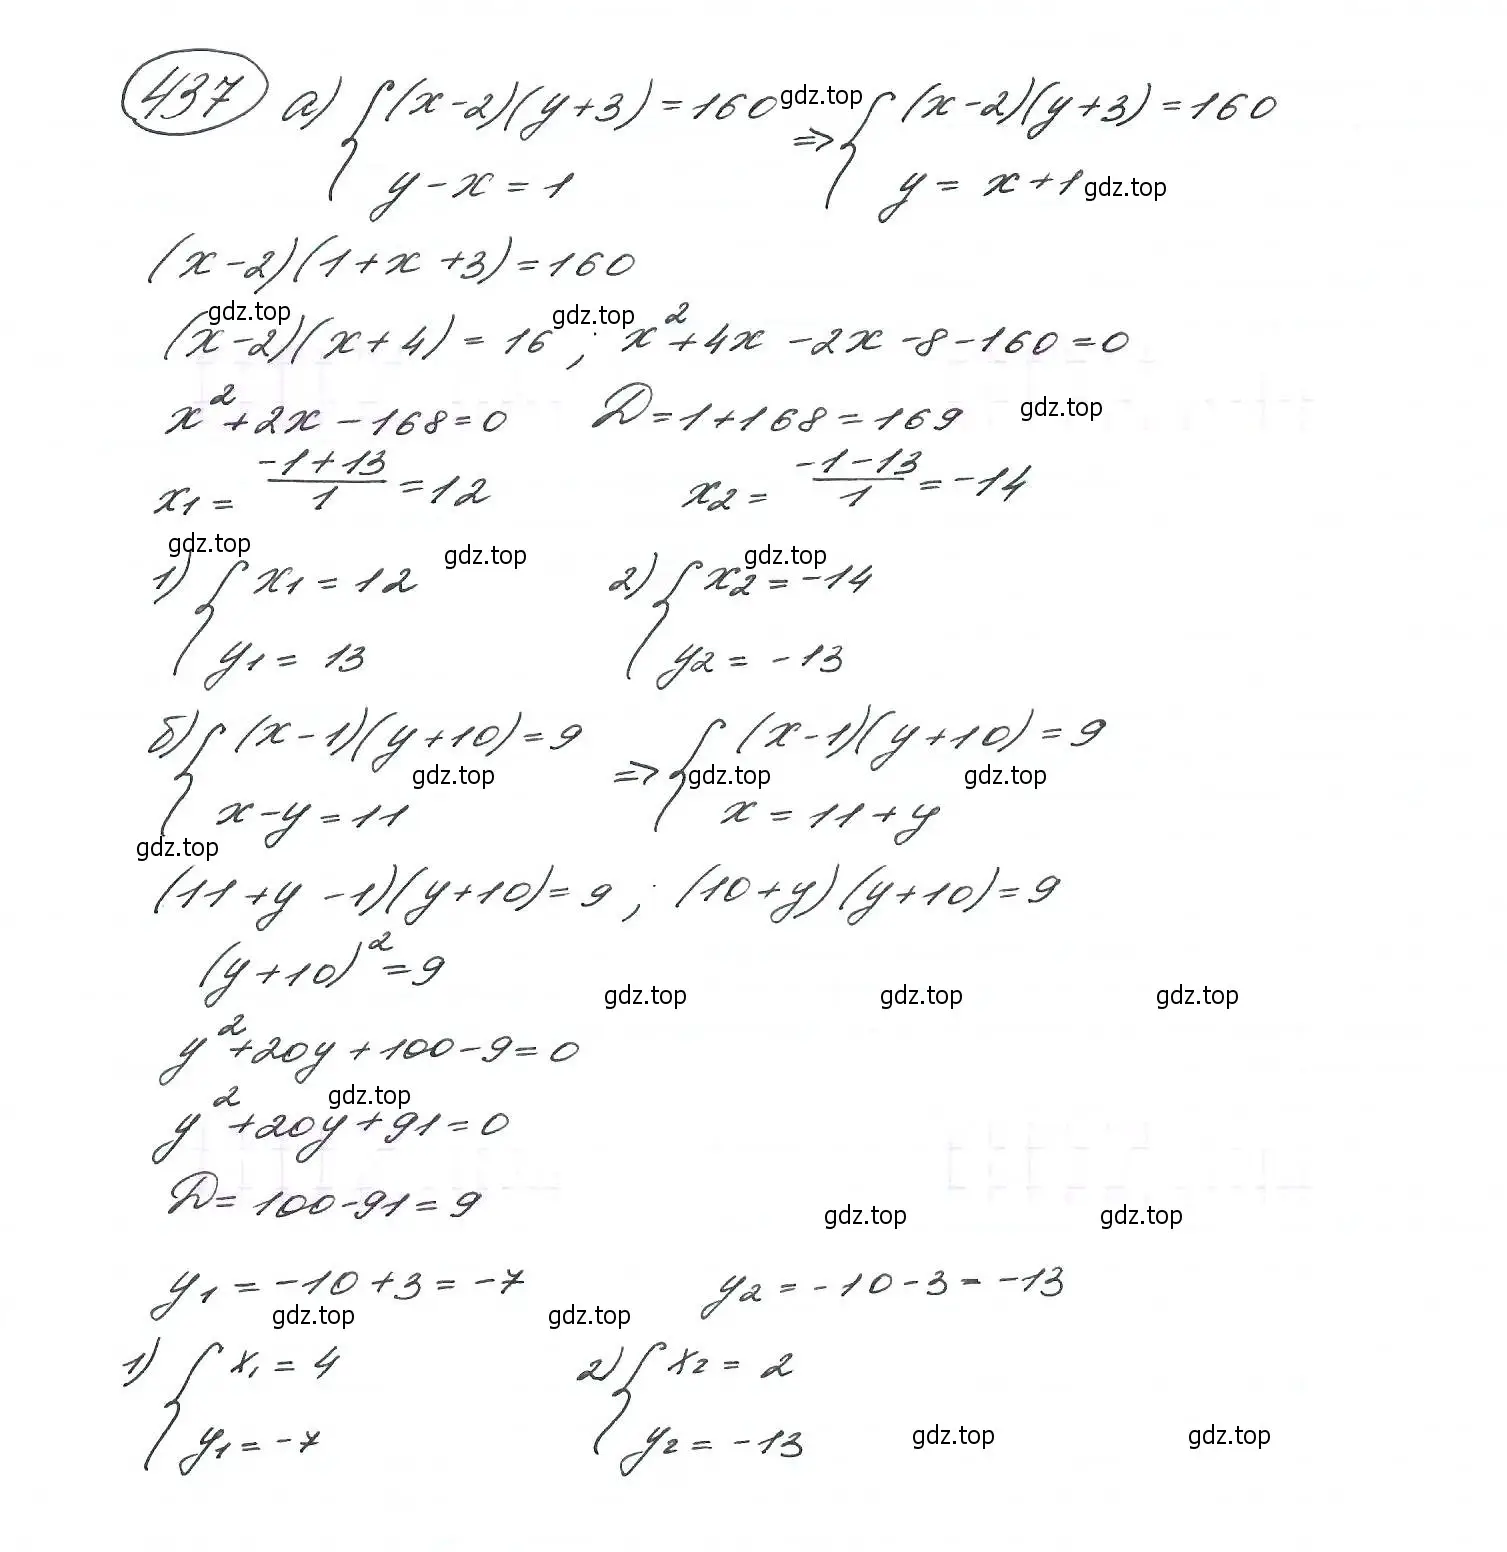 437 а) { (x-2)(y+3)=160 gdz.top => { (x-2)(y+3)=160
y-x=1 y= x+1 gdz.top
(x-2)(1+x+3)=160
gdz.top gdz.top
(x-2)(x+4)=16 ; x²+4x-2x-8-160=0
x²+2x-168=0 D=1+168=169 gdz.top
x1= (-1+13)/1 =12 x2= (-1-13)/1 =-14
gdz.top gdz.top gdz.top
1) { x1=12 2) { x2=-14
y1=13 y2=-13
б) { (x-1)(y+10)=9 => { (x-1)(y+10)=9
gdz.top gdz.top gdz.top
x-y=11 x=11+y
gdz.top
(11+y-1)(y+10)=9 ; (10+y)(y+10)=9
(y+10)²=9
gdz.top gdz.top gdz.top
y²+20y+100-9=0
gdz.top
y²+20y+91=0
D=100-91=9
gdz.top gdz.top
y1=-10+3=-7 y2=-10-3=-13
gdz.top gdz.top
1) { x1=4 2) { x2=2
y1=-7 y2=-13 gdz.top gdz.top